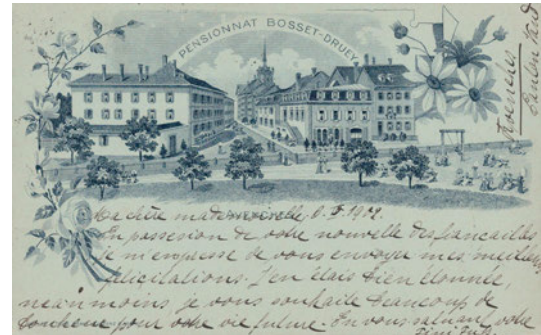 PENSIONNAT BOSSET-DRUEY
Avenches
Canton Vaud
Ma chère mademoiselle, 8. V. 1902.
En possession de votre nouvelle des fiancailles
je m'empresse de vous envoyer mes meilleures
félicitations. J'en étais bien étonnée,
néanmoins je vous souhaite beaucoup de
bonheur pour votre vie future. En vous saluant votre